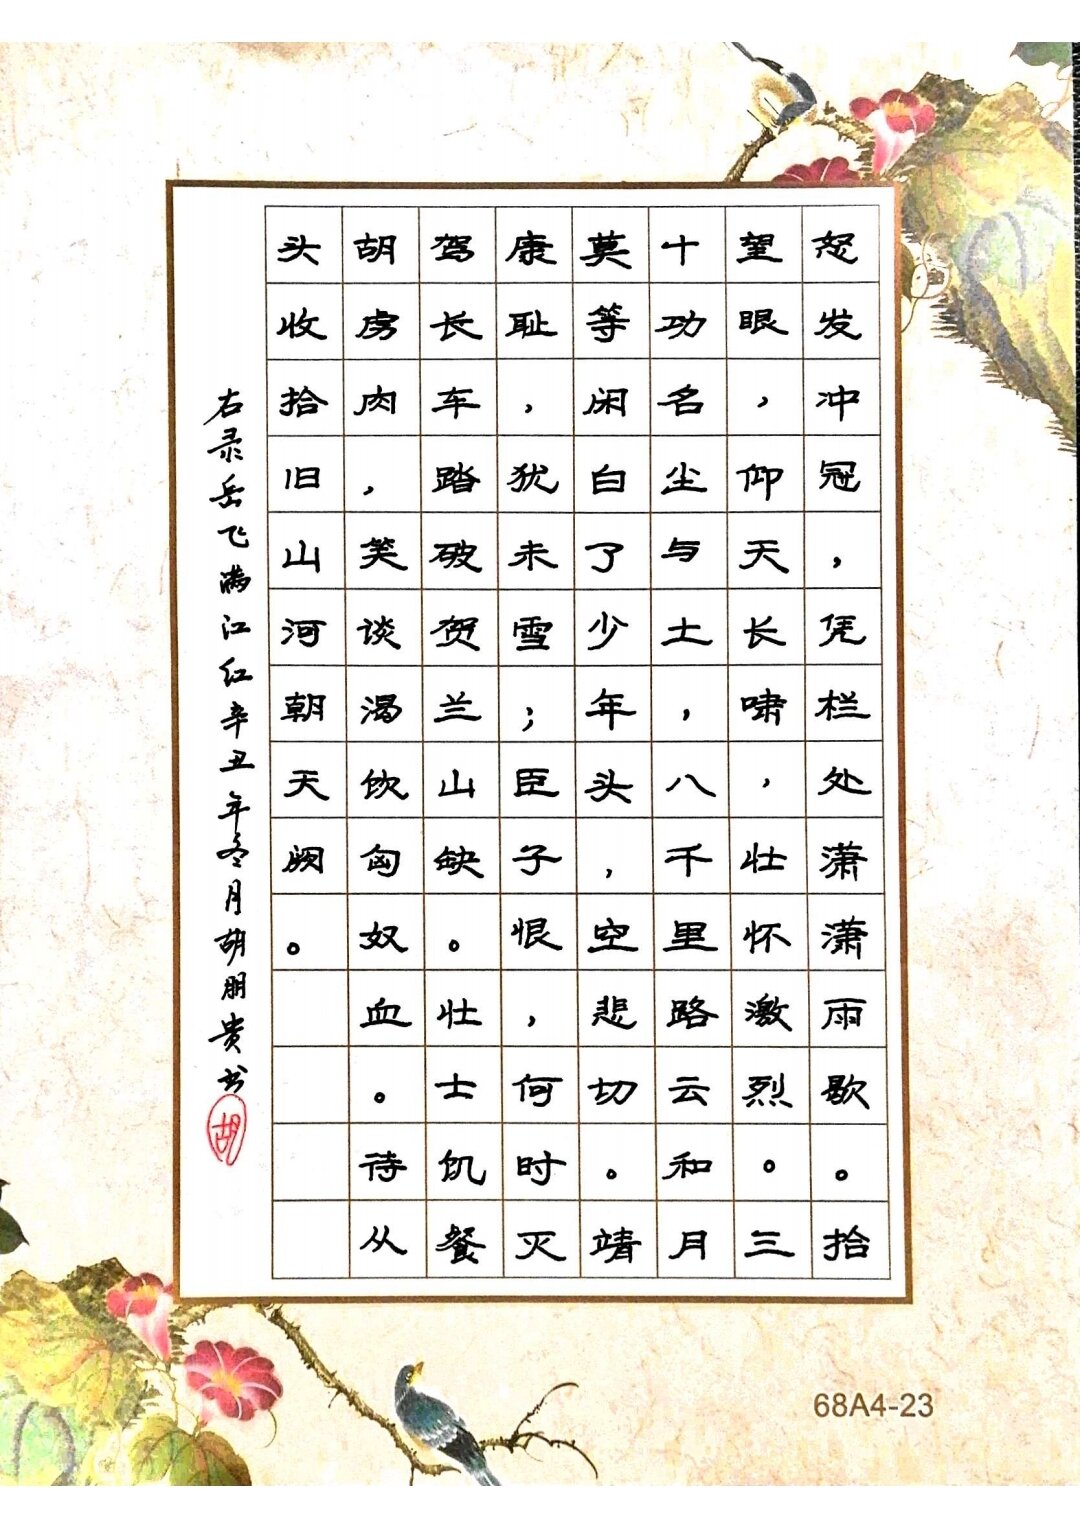 怒发冲冠，凭栏处潇潇雨歇。抬
望眼，仰天长啸，壮怀激烈。三
十功名尘与土，八千里路云和月
莫等闲白了少年头，空悲切。靖
康耻，犹未雪；臣子恨，何时灭
驾长车踏破贺兰山缺。壮士饥餐
胡虏肉，笑谈渴饮匈奴血。待从
头收拾旧山河朝天阙。
右录岳飞满江红辛丑年冬月胡朋贵书
胡
68A4-23